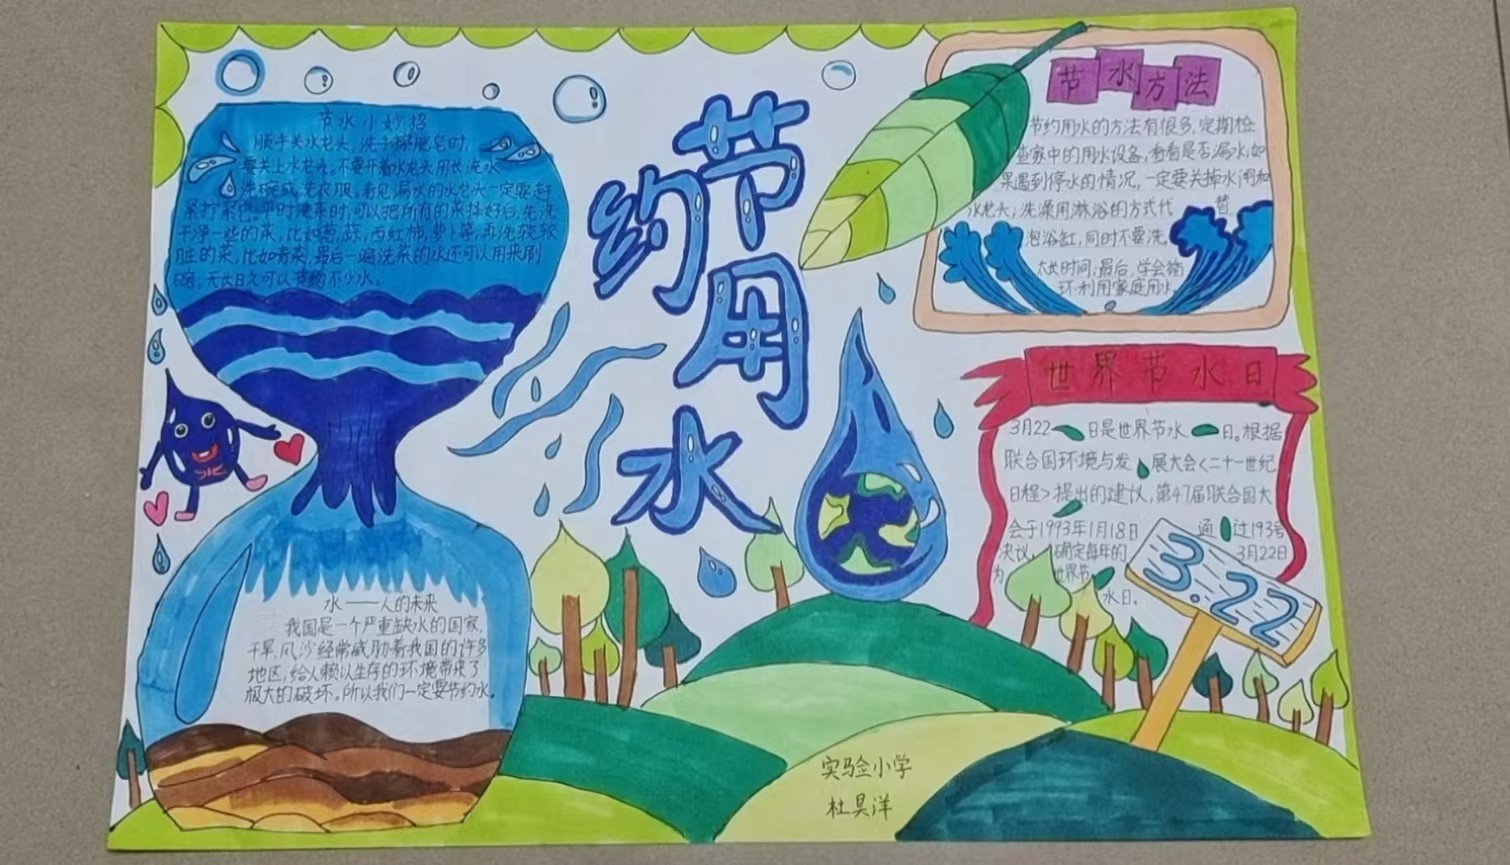 节水小妙招
顺手关水龙头，洗手擦肥皂时，
要关上水龙头。不要开着水龙头用长流水
洗碗或洗衣服。看见漏水的水龙头一定要赶
紧拧紧它。平时洗菜时，可以把所有的菜择好后，先洗
干净一些的菜，比如葱，蒜，西红柿，萝卜等，再洗比较
脏的菜，比如青菜。最后一遍洗菜的水还可以用来刷
碗，天长日久可以节约不少水。
水——人的未来
我国是一个严重缺水的国家，
干旱、风沙经常威胁着我国的许多
地区，给人赖以生存的环境带来了
极大的破坏。所以我们一定要节约水。
节
约
用
水
节水方法
节约用水的方法有很多，定期检
查家中的用水设备，看看是否漏水；如
果遇到停水的情况，一定要关掉水闸和
水龙头；洗澡用淋浴的方式代替
泡浴缸，同时不要洗
太长时间；最后，学会循
环利用家庭用水
世界节水日
3月22日是世界节水日。根据
联合国环境与发展大会<二十一世纪
日程>提出的建议，第47届联合国大
会于1993年1月18日通过193号
决议，确定每年的3月22日
为世界节水日。
3.22
实验小学
杜昊洋